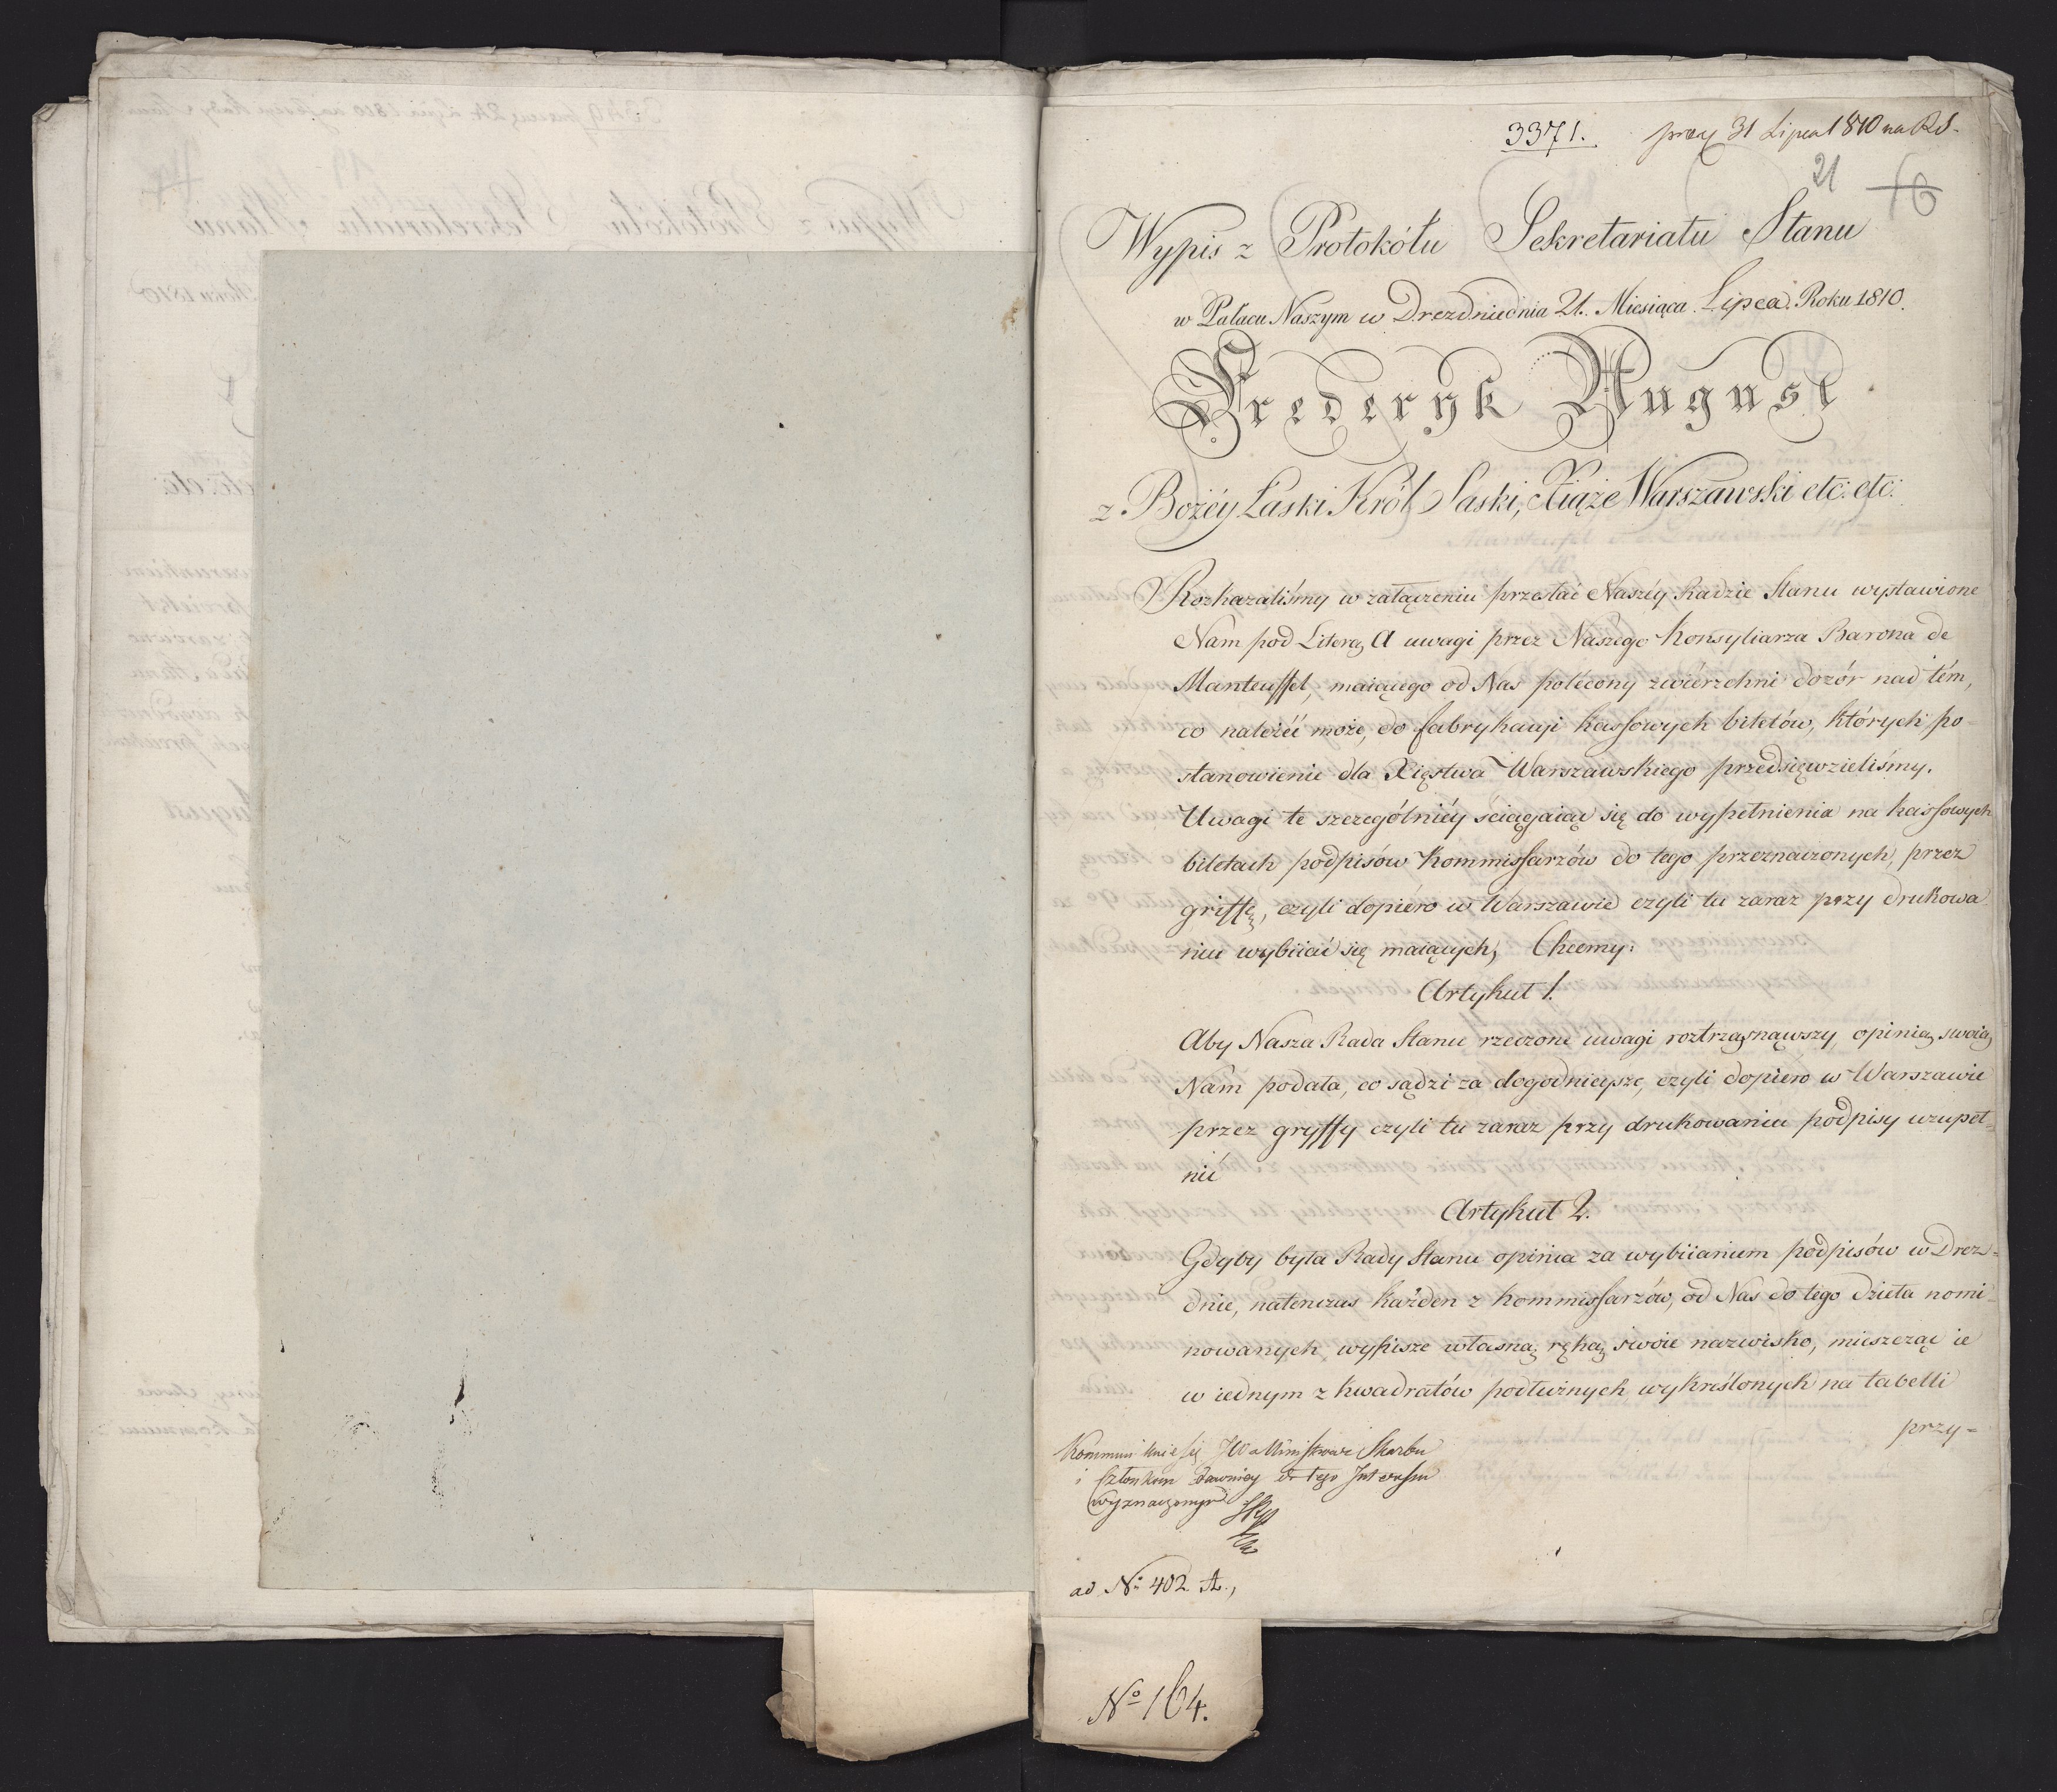 3371.
31 Lipca 1810 na RS.
21
Wypis z Protokółu Sekretariatu Stanu
w Pałacu Naszym w Dreznie dnia 21. Miesiąca Lipca. Roku 1810.
Frederyk August
z Bożéy Łaski Król Saski, Xiąże Warszawski etc: etc:
Rozkazaliśmy w załączeniu przesłać Naszéy Radzie Stanu wystawione
Nam pod Literą A uwagi przez Naszego Konsyliarza Barona de
Manteuffel, maiącego od Nas polecony zwierzchni dozór nad tém,
co należéć może, do fabrykacyi kassowych biletów, których po-
stanowienie dla Xięstwa Warszawskiego przedsięwzieliśmy.
Uwagi te szczególniéy ściągaiąc się do wypełnienia na kassowych
biletach podpisów Kommissarzów do tego przeznaczonych, przez
griffę, czyli dopiéro w Warszawie czyli tu zaraz przy drukowa-
niu wybiiać się maiących, Chcemy:
Artykuł 1.
Aby Nasza Rada Stanu rzeczone uwagi roztrząsnąwszy, opinią swoią
Nam podała, co sądzi za dogodnieysze, czyli dopiero w Warszawie
przez gryffy czyli tu zaraz przy drukowaniu podpisy uzupeł-
nić
Artykuł 2.
Gdyby była Rady Stanu opinia za wybiianiem podpisów w Drez-
dnie, natenczas każden z kommissarzów, od Nas do tego dzieła nomi-
nowanych, wypisze własną ręką swoie nazwisko, mieszcząc ie
w iednym z kwadratów podłużnych wykreślonych na tabelli
przy-
Kommunikuie się JW Ministrowi Skarbu
i Członkom dawniey do tego Interessu
wyznaczonym
ad No 402. A.,
No 164.